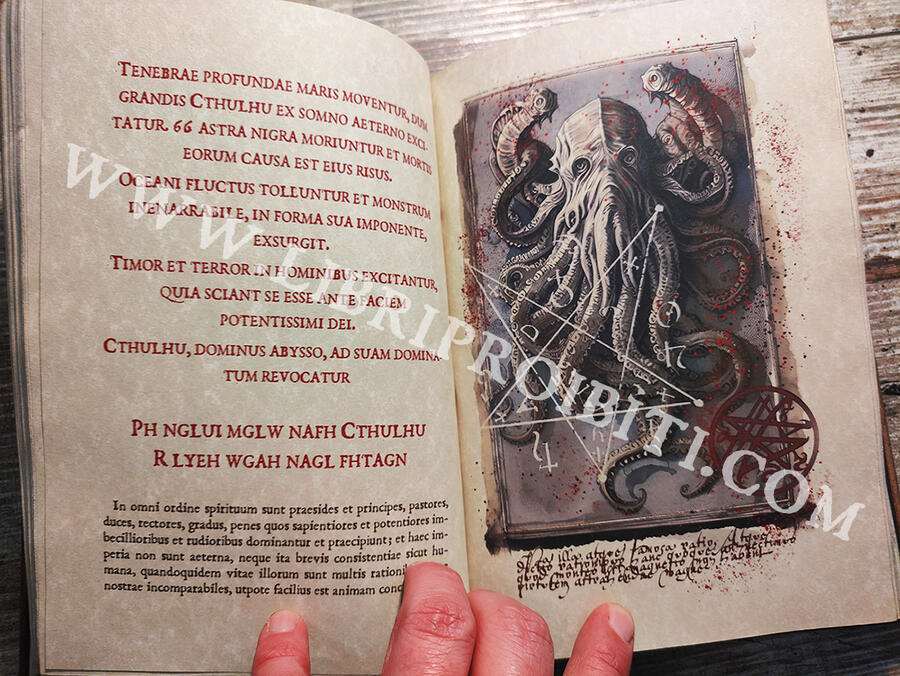 Tenebrae profundae maris moventur, dum
grandis Cthulhu ex somno aeterno exci-
tatur. 66 astra nigra moriuntur et mortis
eorum causa est eius risus.
Oceani fluctus tolluntur et monstrum
inenarrabile, in forma sua imponente,
exsurgit.
Timor et terror in hominibus excitantur,
quia sciant se esse ante faciem
potentissimi dei.
Cthulhu, dominus abysso, ad suam domina-
tum revocatur
Ph nglui mglw nafh Cthulhu
R lyeh wgah nagl fhtagn
In omni ordine spirituum sunt praesides et principes, pastores,
duces, rectores, gradus, penes quos sapientiores et potentiores im-
becillioribus et rudioribus dominantur et praecipiunt; et haec im-
peria non sunt aeterna, neque ita brevis consistentiae sicut hu-
mana, quandoquidem vitae illorum sunt multis
nostrae incomparabiles, utpote facilius est animam
WWW.LIBRIPROIBITI.COM